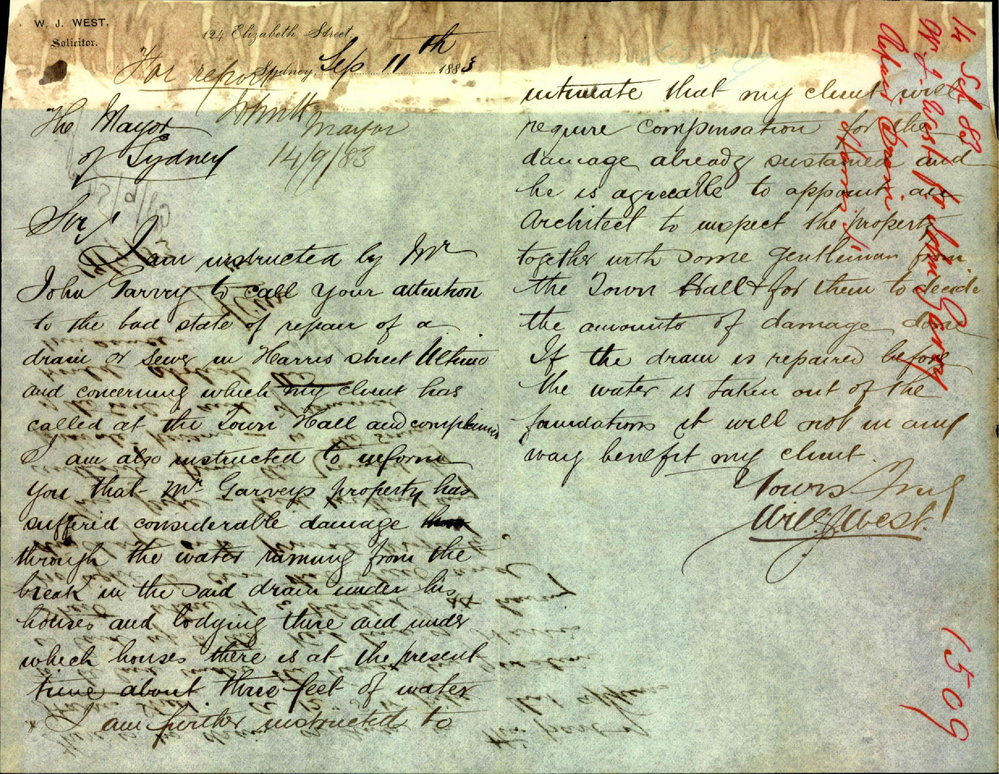 W. J. WEST,
Solicitor.
124 Elizabeth Street,
Sydney, Sep 11th 1883
For report
Mayor
14/9/83
The Mayor
of Sydney
Sir,
I am instructed by Mr
John Garvey to call your attention
to the bad state of repair of a
drain or sewer in Harris street Ultimo
and concerning which my client has
called at the Town Hall and complained
I am also instructed to inform
you that Mr Garveys property has
suffered considerable damage
through the water running from the
break in the said drain under his
houses and lodging there and under
which houses there is at the present
time about three feet of water
I am further instructed to
intimate that my client will
require compensation for the
damage already sustained and
he is agreeable to appoint an
Architect to inspect the property
together with some gentleman from
the Town Hall & for them to decide
the amounts of damage done
If the drain is repaired before
the water is taken out of the
foundations it will not in any
way benefit my client.
Yours truly
Will J West.
14 Sep 83
W. J. West for John Garvey
Repair Drain Harris St
1509